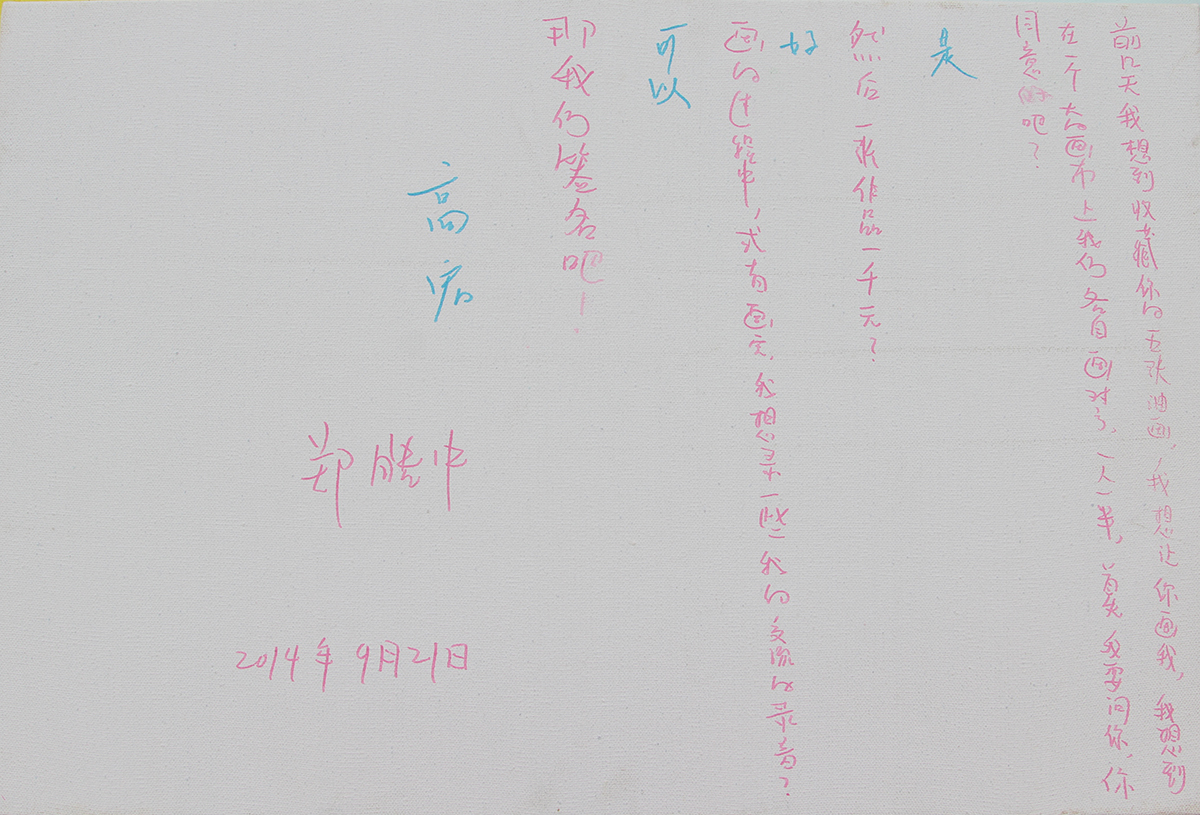 前几天我想到收藏你的五张油画,我想让你画我,我想到
在一个大的画布上我们各自画对方,一人一半,首先我要问你,你
同意吧?
是
然后一张作品一千元?
好
画的过程中,或者画完,我想录一些我的交流的录音?
可以
那我们签名吧!
高宏
郑胜中
2014年9月21日